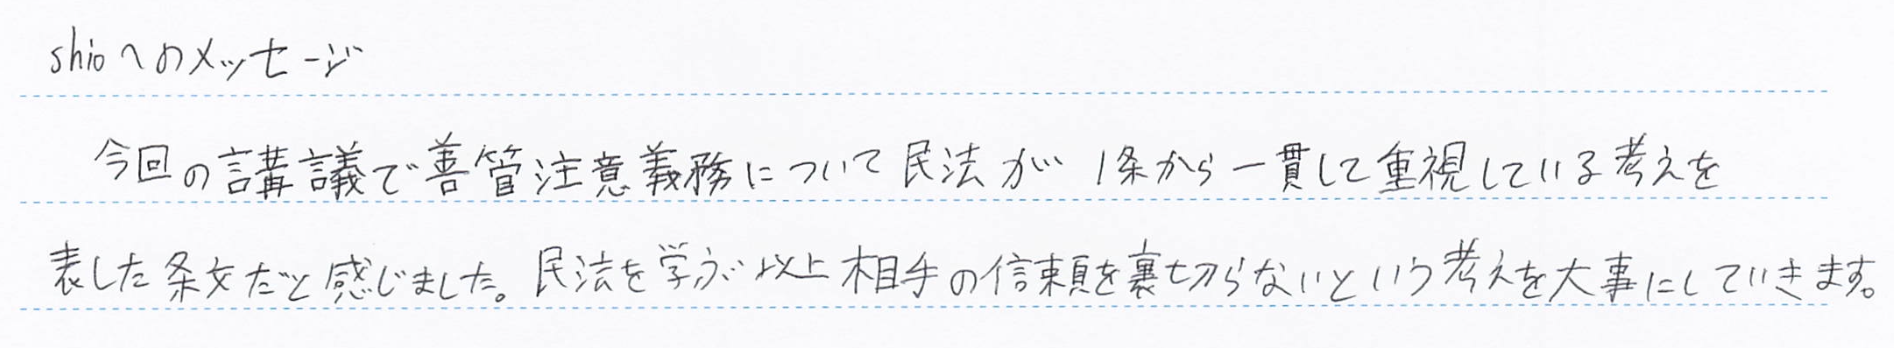 shioへのメッセージ
今回の講議で善管注意義務について民法が1条から一貫して重視している考えを
表した条文だと感じました。民法を学ぶ以上相手の信頼を裏切らないという考えを大事にしていきます。